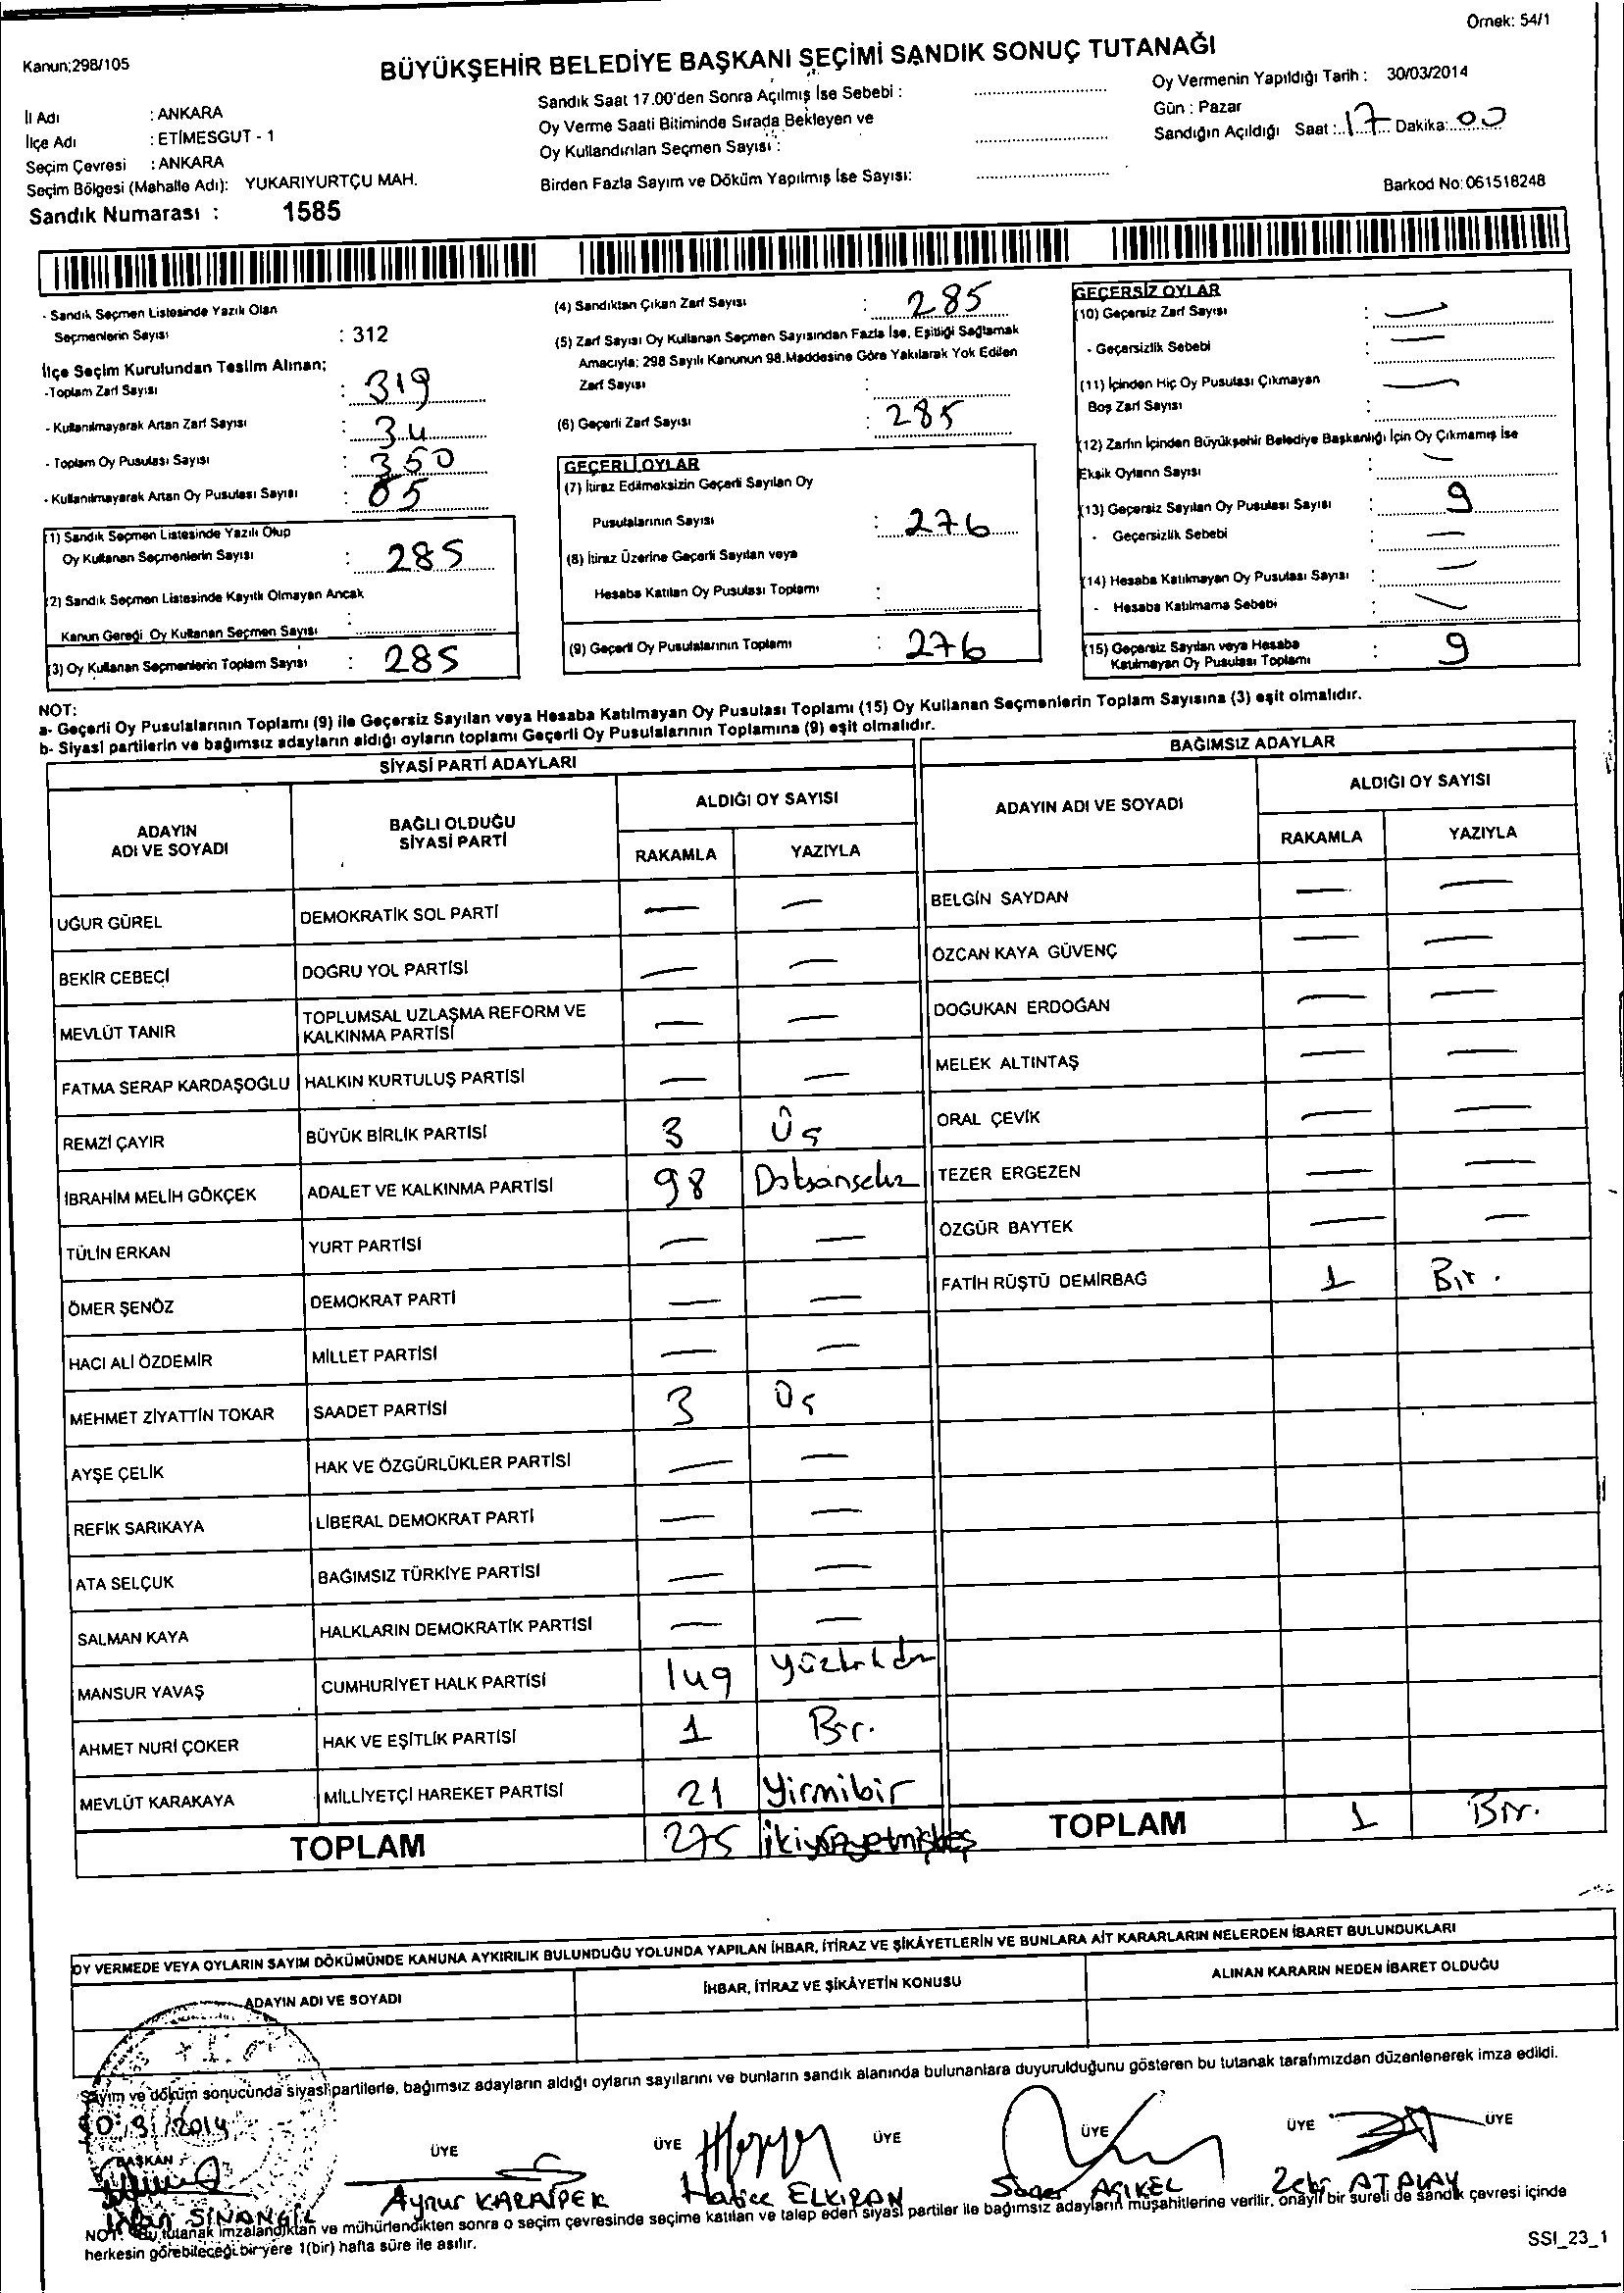 Örnek: 54/1
Kanun;298/105
BÜYÜKŞEHİR BELEDİYE BAŞKANI SEÇİMİ SANDIK SONUÇ TUTANAĞI
İl Adı : ANKARA
İlçe Adı : ETİMESGUT - 1
Seçim Çevresi : ANKARA
Seçim Bölgesi (Mahalle Adı): YUKARIYURTÇU MAH.
Sandık Numarası : 1585
Sandık Saat 17.00'den Sonra Açılmış İse Sebebi :
Oy Verme Saati Bitiminde Sırada Bekleyen ve
Oy Kullandırılan Seçmen Sayısı :
Birden Fazla Sayım ve Döküm Yapılmış İse Sayısı:
Oy Vermenin Yapıldığı Tarih : 30/03/2014
Gün : Pazar
Sandığın Açıldığı Saat : 17 Dakika: 00
Barkod No: 061518248
- Sandık Seçmen Listesinde Yazılı Olan
Seçmenlerin Sayısı : 312
İlçe Seçim Kurulundan Teslim Alınan;
-Toplam Zarf Sayısı : 319
- Kullanılmayarak Artan Zarf Sayısı : 34
- Toplam Oy Pusulası Sayısı : 350
- Kullanılmayarak Artan Oy Pusulası Sayısı : 65
(1) Sandık Seçmen Listesinde Yazılı Olup
Oy Kullanan Seçmenlerin Sayısı : 285
(2) Sandık Seçmen Listesinde Kayıtlı Olmayan Ancak
Kanun Gereği Oy Kullanan Seçmen Sayısı :
(3) Oy Kullanan Seçmenlerin Toplam Sayısı : 285
(4) Sandıktan Çıkan Zarf Sayısı : 285
(5) Zarf Sayısı Oy Kullanan Seçmen Sayısından Fazla İse, Eşitliği Sağlamak
Amacıyla; 298 Sayılı Kanunun 98.Maddesine Göre Yakılarak Yok Edilen
Zarf Sayısı :
(6) Geçerli Zarf Sayısı : 285
GEÇERLİ OYLAR
(7) İtiraz Edilmeksizin Geçerli Sayılan Oy
Pusulalarının Sayısı : 276
(8) İtiraz Üzerine Geçerli Sayılan veya
Hesaba Katılan Oy Pusulası Toplamı :
(9) Geçerli Oy Pusulalarının Toplamı : 276
GEÇERSİZ OYLAR
(10) Geçersiz Zarf Sayısı : —
- Geçersizlik Sebebi : —
(11) İçinden Hiç Oy Pusulası Çıkmayan —
Boş Zarf Sayısı :
(12) Zarfın İçinden Büyükşehir Belediye Başkanlığı İçin Oy Çıkmamış ise
Eksik Oyların Sayısı : —
(13) Geçersiz Sayılan Oy Pusulası Sayısı : 9
- Geçersizlik Sebebi : —
(14) Hesaba Katılmayan Oy Pusulası Sayısı : —
- Hesaba Katılmama Sebebi : —
(15) Geçersiz Sayılan veya Hesaba
Katılmayan Oy Pusulası Toplamı : 9
NOT:
a- Geçerli Oy Pusulalarının Toplamı (9) ile Geçersiz Sayılan veya Hesaba Katılmayan Oy Pusulası Toplamı (15) Oy Kullanan Seçmenlerin Toplam Sayısına (3) eşit olmalıdır.
b- Siyasi partilerin ve bağımsız adayların aldığı oyların toplamı Geçerli Oy Pusulalarının Toplamına (9) eşit olmalıdır.
SİYASİ PARTİ ADAYLARI
ADAYIN ADI VE SOYADI BAĞLI OLDUĞU SİYASİ PARTİ ALDIĞI OY SAYISI
RAKAMLA YAZIYLA
UĞUR GÜREL DEMOKRATİK SOL PARTİ — —
BEKİR CEBECİ DOĞRU YOL PARTİSİ — —
MEVLÜT TANIR TOPLUMSAL UZLAŞMA REFORM VE KALKINMA PARTİSİ — —
FATMA SERAP KARDAŞOĞLU HALKIN KURTULUŞ PARTİSİ — —
REMZİ ÇAYIR BÜYÜK BİRLİK PARTİSİ 3 Üç
İBRAHİM MELİH GÖKÇEK ADALET VE KALKINMA PARTİSİ 98 Doksansekiz
TÜLİN ERKAN YURT PARTİSİ — —
ÖMER ŞENÖZ DEMOKRAT PARTİ — —
HACI ALİ ÖZDEMİR MİLLET PARTİSİ — —
MEHMET ZİYATTİN TOKAR SAADET PARTİSİ 3 Üç
AYŞE ÇELİK HAK VE ÖZGÜRLÜKLER PARTİSİ — —
REFİK SARIKAYA LİBERAL DEMOKRAT PARTİ — —
ATA SELÇUK BAĞIMSIZ TÜRKİYE PARTİSİ — —
SALMAN KAYA HALKLARIN DEMOKRATİK PARTİSİ — —
MANSUR YAVAŞ CUMHURİYET HALK PARTİSİ 149
AHMET NURİ ÇOKER HAK VE EŞİTLİK PARTİSİ 1 Bir.
MEVLÜT KARAKAYA MİLLİYETÇİ HAREKET PARTİSİ 21 Yirmibir
TOPLAM 275 ikiyüzyetmişbeş
BAĞIMSIZ ADAYLAR
ADAYIN ADI VE SOYADI ALDIĞI OY SAYISI
RAKAMLA YAZIYLA
BELGİN SAYDAN — —
ÖZCAN KAYA GÜVENÇ — —
DOĞUKAN ERDOĞAN — —
MELEK ALTINTAŞ — —
ORAL ÇEVİK — —
TEZER ERGEZEN — —
ÖZGÜR BAYTEK — —
FATİH RÜŞTÜ DEMİRBAĞ 1 Bir.
TOPLAM 1 Bir.
OY VERMEDE VEYA OYLARIN SAYIM DÖKÜMÜNDE KANUNA AYKIRILIK BULUNDUĞU YOLUNDA YAPILAN İHBAR, İTİRAZ VE ŞİKÂYETLERİN VE BUNLARA AİT KARARLARIN NELERDEN İBARET BULUNDUKLARI
ADAYIN ADI VE SOYADI İHBAR, İTİRAZ VE ŞİKÂYETİN KONUSU ALINAN KARARIN NEDEN İBARET OLDUĞU
Sayım ve döküm sonucunda siyasi partilerle, bağımsız adayların aldığı oyların sayılarını ve bunların sandık alanında bulunanlara duyurulduğunu gösteren bu tutanak tarafımızdan düzenlenerek imza edildi.
30/3/2014
BAŞKAN ÜYE ÜYE ÜYE ÜYE ÜYE ÜYE
SİNANGİL Aynur KARAİPEK Hatice ELKIRAN Soner AÇIKEL ATALAY
NOT: Bu tutanak imzalandıktan ve mühürlendikten sonra o seçim çevresinde seçime katılan ve talep eden siyasi partiler ile bağımsız adayların müşahitlerine verilir, onaylı bir sureti de sandık çevresi içinde
herkesin görebileceği bir yere 1(bir) hafta süre ile asılır.
SSI_23_1